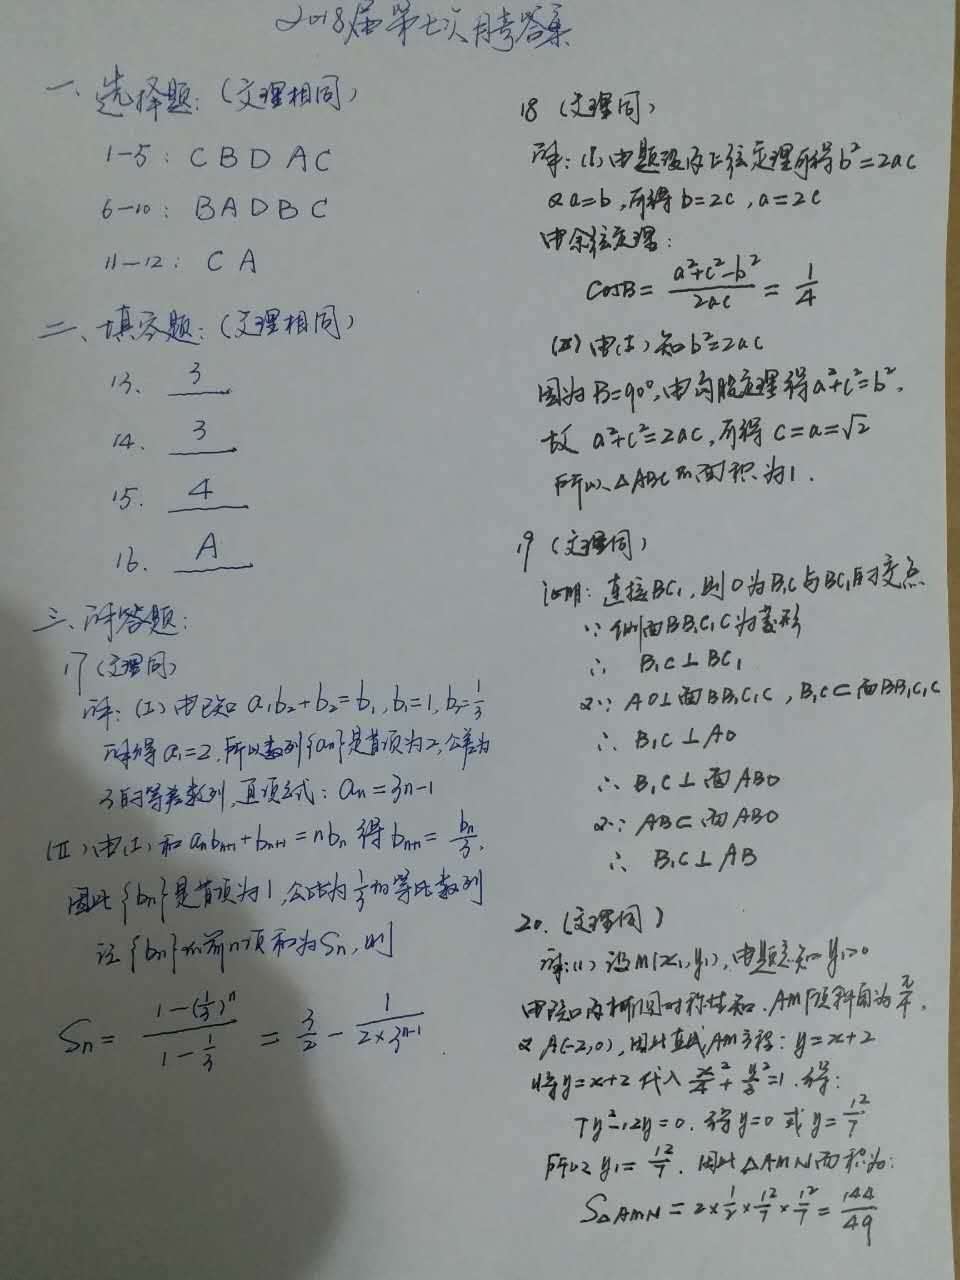 2018届第七次月考答案
一、选择题:(文理相同)
1-5: C B D A C
6-10: B A D B C
11-12: C A
二、填空题:(文理相同)
13. 3
14. 3
15. 4
16. A
三、解答题:
17 (文理同)
解:(I)由已知 a₁b₂+b₂=b₁,b₁=1,b₂=1/3
解得a₁=2,所以数列{an}是首项为2,公差为
3的等差数列,通项公式:an=3n-1
(II)由(I)和anbn+1+bn+1=nbn 得bn+1=bn/3,
因此{bn}是首项为1,公比为1/3的等比数列
记{bn}的前n项和为Sn,则
Sn=(1-(1/3)ⁿ)/(1-1/3)=3/2-1/(2×3ⁿ⁻¹)
18 (文理同)
解:(I)由题设及正弦定理可得b²=2ac
又a=b,可得b=2c,a=2c
由余弦定理:
cosB=(a²+c²-b²)/2ac=1/4
(II)由(I)知b²=2ac
因为B=90°,由勾股定理得a²+c²=b²,
故 a²+c²=2ac,可得c=a=√2
所以△ABC的面积为1.
19 (文理同)
证明:连接BC₁,则O为B₁C与BC₁的交点
∵侧面BB₁C₁C为菱形
∴ B₁C⊥BC₁
又∵AO⊥面BB₁C₁C,B₁C⊂面BB₁C₁C
∴ B₁C⊥AO
∴ B₁C⊥面ABO
又∵ AB⊂面ABO
∴ B₁C⊥AB
20.(文理同)
解:(1)设M(x₁,y₁),由题意知y₁>0
由已知及椭圆对称性知,AM倾斜角为π/4,
又A(-2,0),因此直线AM方程:y=x+2
将y=x+2代入x²/4+y²/3=1,得:
7y²-12y=0.得y=0或y=12/7
所以y₁=12/7.因此△AMN面积为:
S△AMN=2×1/2×12/7×12/7=144/49